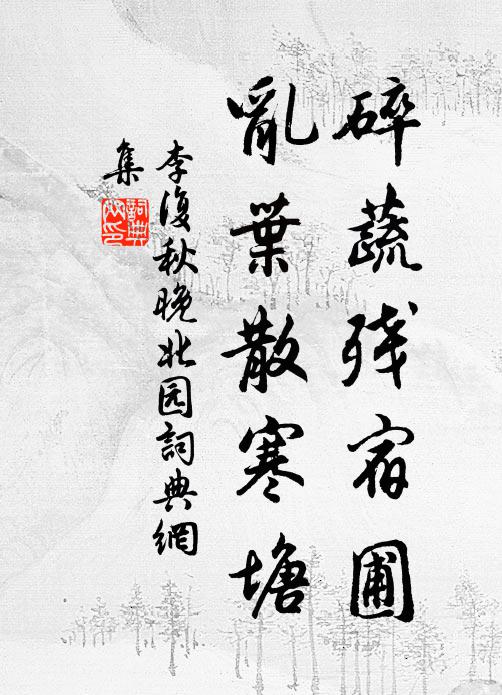 碎蔬残宿圃
亂葉散寒塘
李復秋晚北园詞典網
集
詞典网印